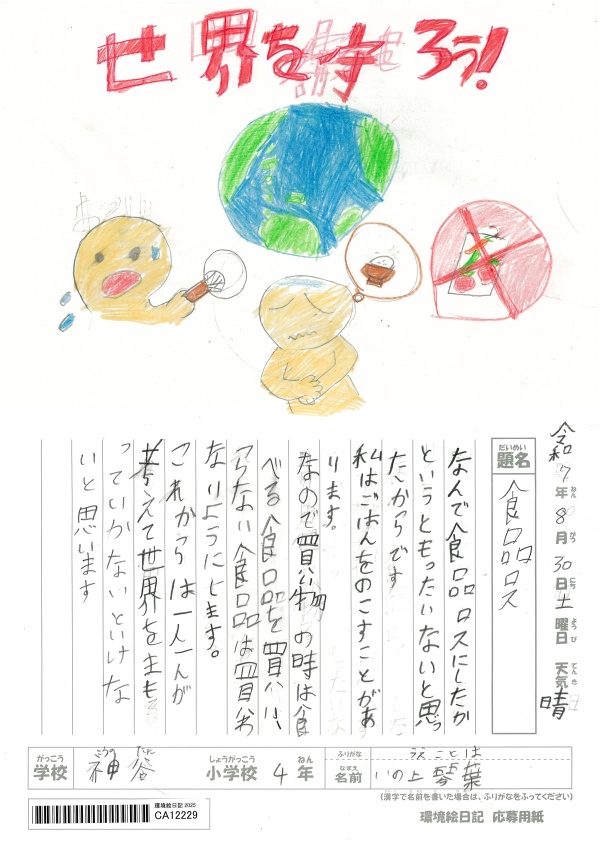 世界を守ろう!
令和7年8月30日土曜日 天気 晴
ねん がつ にち ようび てんき
だいめい
題名
食品ロス
なんで食品ロスにしたか
というともったいないと思っ
たからです
私はごはんをのこすことがあ
ります。
なので買い物の時は食
べる食品を買い、
つらない食品は買わ
なりようにします。
これからは一人一人が
考えて世界を主も
っていかないといけな
いと思います
がっこう
学校
神谷
しょうがっこう
小学校
4年
ねん
ふりがな
うえ ことは
なまえ
名前
いの上 琴葉
(漢字で名前を書いた場合は、ふりがなをふってください)
環境絵日記 2025
CA12229
環境絵日記 応募用紙